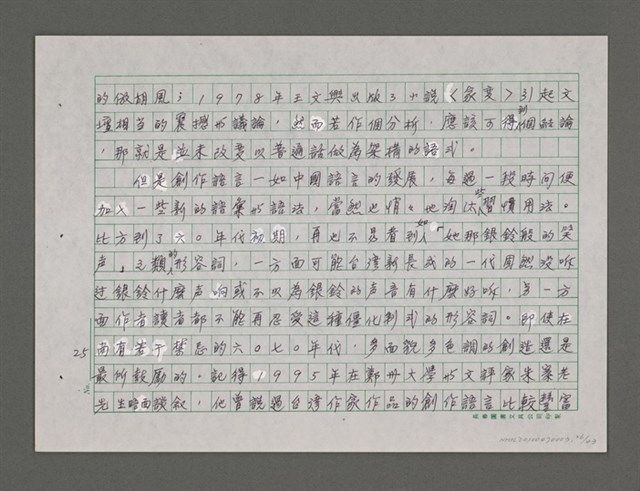 的做胡風；1978年王文興出版了小說〈家變〉引起文
壇相当的震撼和議論，然而若作個分析，應該可得到個結論
，那就是並未改变以普通話做為架構的語式。
但是創作語言一如中國語言的發展，每過一段時間便
加入一些新的語彙和語法，當然也悄々地淘汰一些習慣用法。
比方到了六○年代初期，再也不易看到如「她那銀鈴般的笑
声」之類的形容詞，一方面可能台湾新長成的一代固然没听
过銀鈴什麼声响或不以為銀鈴的声音有什麼好听，另一方
面作者讀者都不能再忍受這種僵化制式的形容詞。即使在
尚有若干禁忌的六○七○年代，多面貌多色調的創造還是
最所鼓勵的。記得1995年在鄭州大學和文評家朱寨老
先生晤面談叙，他曾説過台湾作家作品的創作語言比較豐富
25